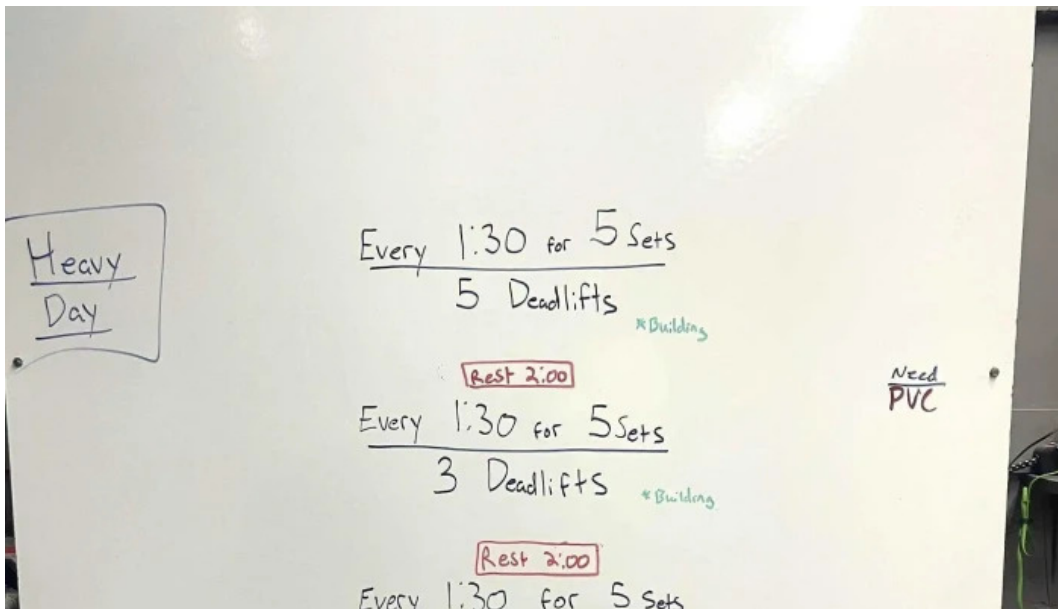 Heavy
Day
Every 1:30 for 5 Sets
5 Deadlifts
*Building
Rest 2:00
Every 1:30 for 5 Sets
3 Deadlifts
*Building
Need
PVC
Rest 2:00
Every 1:30 for 5 Sets